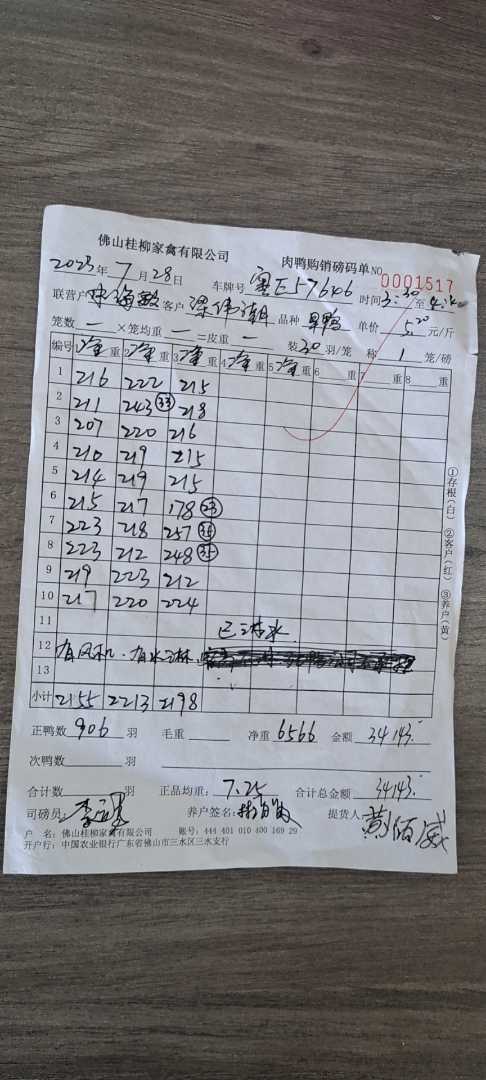 佛山桂柳家禽有限公司 肉鸭购销磅码单 NO 0001517
2023年7月28日 车牌号 粤E57646 时间3:30至4:20
联营户 客户 梁伟潮 品种 旱鸭 单价 5.20 元/斤
笼数 — ×笼均重 — =皮重 — 装30羽/笼 称 1 笼/磅
编号 1净重 2净重 3净重 4净重 5净重 6 重 7 重 8 重
1 216 222 215
2 211 243㉝ 218
3 207 220 216
4 210 219 215
5 214 219 215
6 215 217 178㉓
7 223 218 257㉟
8 223 212 248㉟
9 219 223 212
10 217 220 224
11 已淋水
12 有风机.有水淋.
13
小计 2155 2213 2198
正鸭数 906 羽 毛重 净重 6566 金额 34143.
次鸭数 羽
合计数 羽 正品均重: 7.25 合计总金额 34143.
司磅员: 养户签名: 提货人 黄佰威
户 名: 佛山桂柳家禽有限公司 账号: 444 401 010 400 169 29
开户行: 中国农业银行广东省佛山市三水区三水支行
①存根(白) ②客户(红) ③养户(黄)